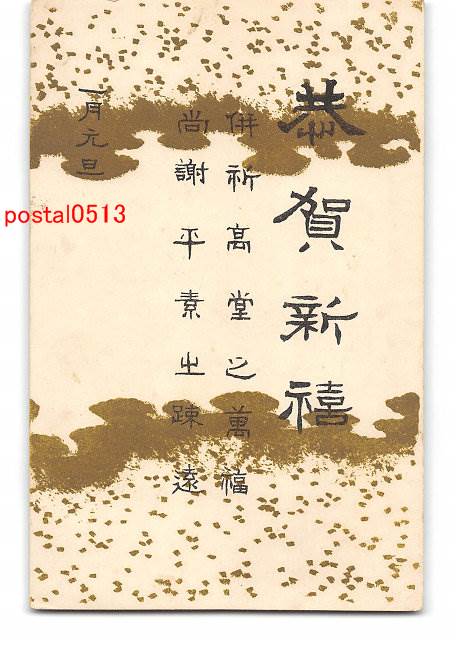 恭賀新禧
併祈高堂之萬福
尚謝平素之疎遠
一月元旦
postal0513